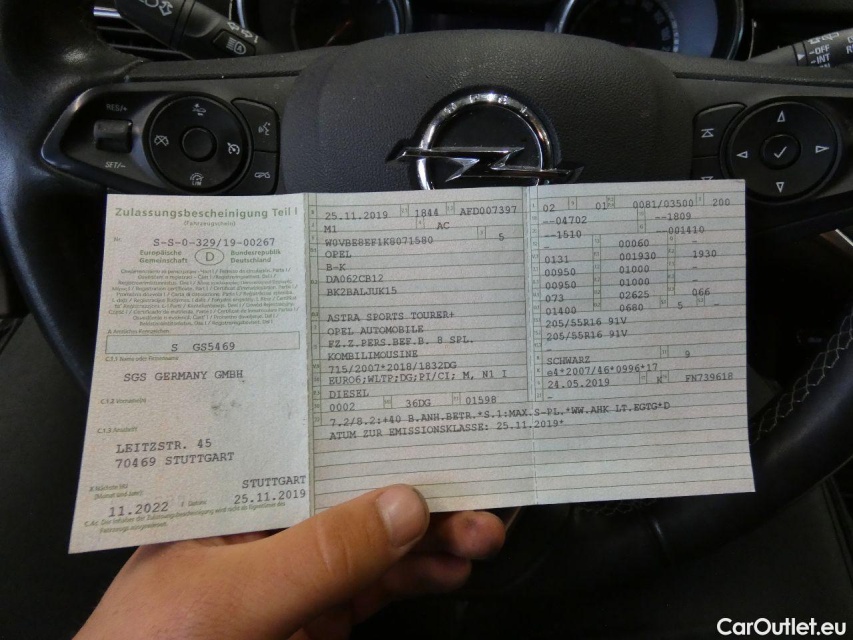 -OFF
-INT
RES/+
SET/-
Zulassungsbescheinigung Teil I
(Fahrzeugschein)
Nr. S-S-0-329/19-00267
Europäische Gemeinschaft D Bundesrepublik Deutschland
A Amtliches Kennzeichen
S GS5469
C.1.1 Name oder Firmenname
SGS GERMANY GMBH
C.1.2 Vorname(n)
C.1.3 Anschrift
LEITZSTR. 45
70469 STUTTGART
STUTTGART
11.2022
25.11.2019
25.11.2019 1844 AFD007397
M1 AC
W0VBE8EF1K8071580 5
OPEL
B-K
DA062CB12
BK2BALJUK15
ASTRA SPORTS TOURER+
OPEL AUTOMOBILE
FZ.Z.PERS.BEF.B. 8 SPL.
KOMBILIMOUSINE
715/2007*2018/1832DG
EURO6;WLTP;DG;PI/CI; M, N1 I
DIESEL
0002 36DG 01598
02 01 0081/03500 200
--04702 --1809
--1510 --001410
- 00060 -
0131 001930 1930
00950 01000 -
00950 01000 -
073 02625 066
01400 0680 5 -
205/55R16 91V
205/55R16 91V
-
SCHWARZ 9
e4*2007/46*0996*17
24.05.2019 K FN739618
-
7.2/8.2:+40 B.ANH.BETR.*S.1:MAX.S-PL.*WW.AHK LT.EGTG*D
ATUM ZUR EMISSIONSKLASSE: 25.11.2019*
CarOutlet.eu